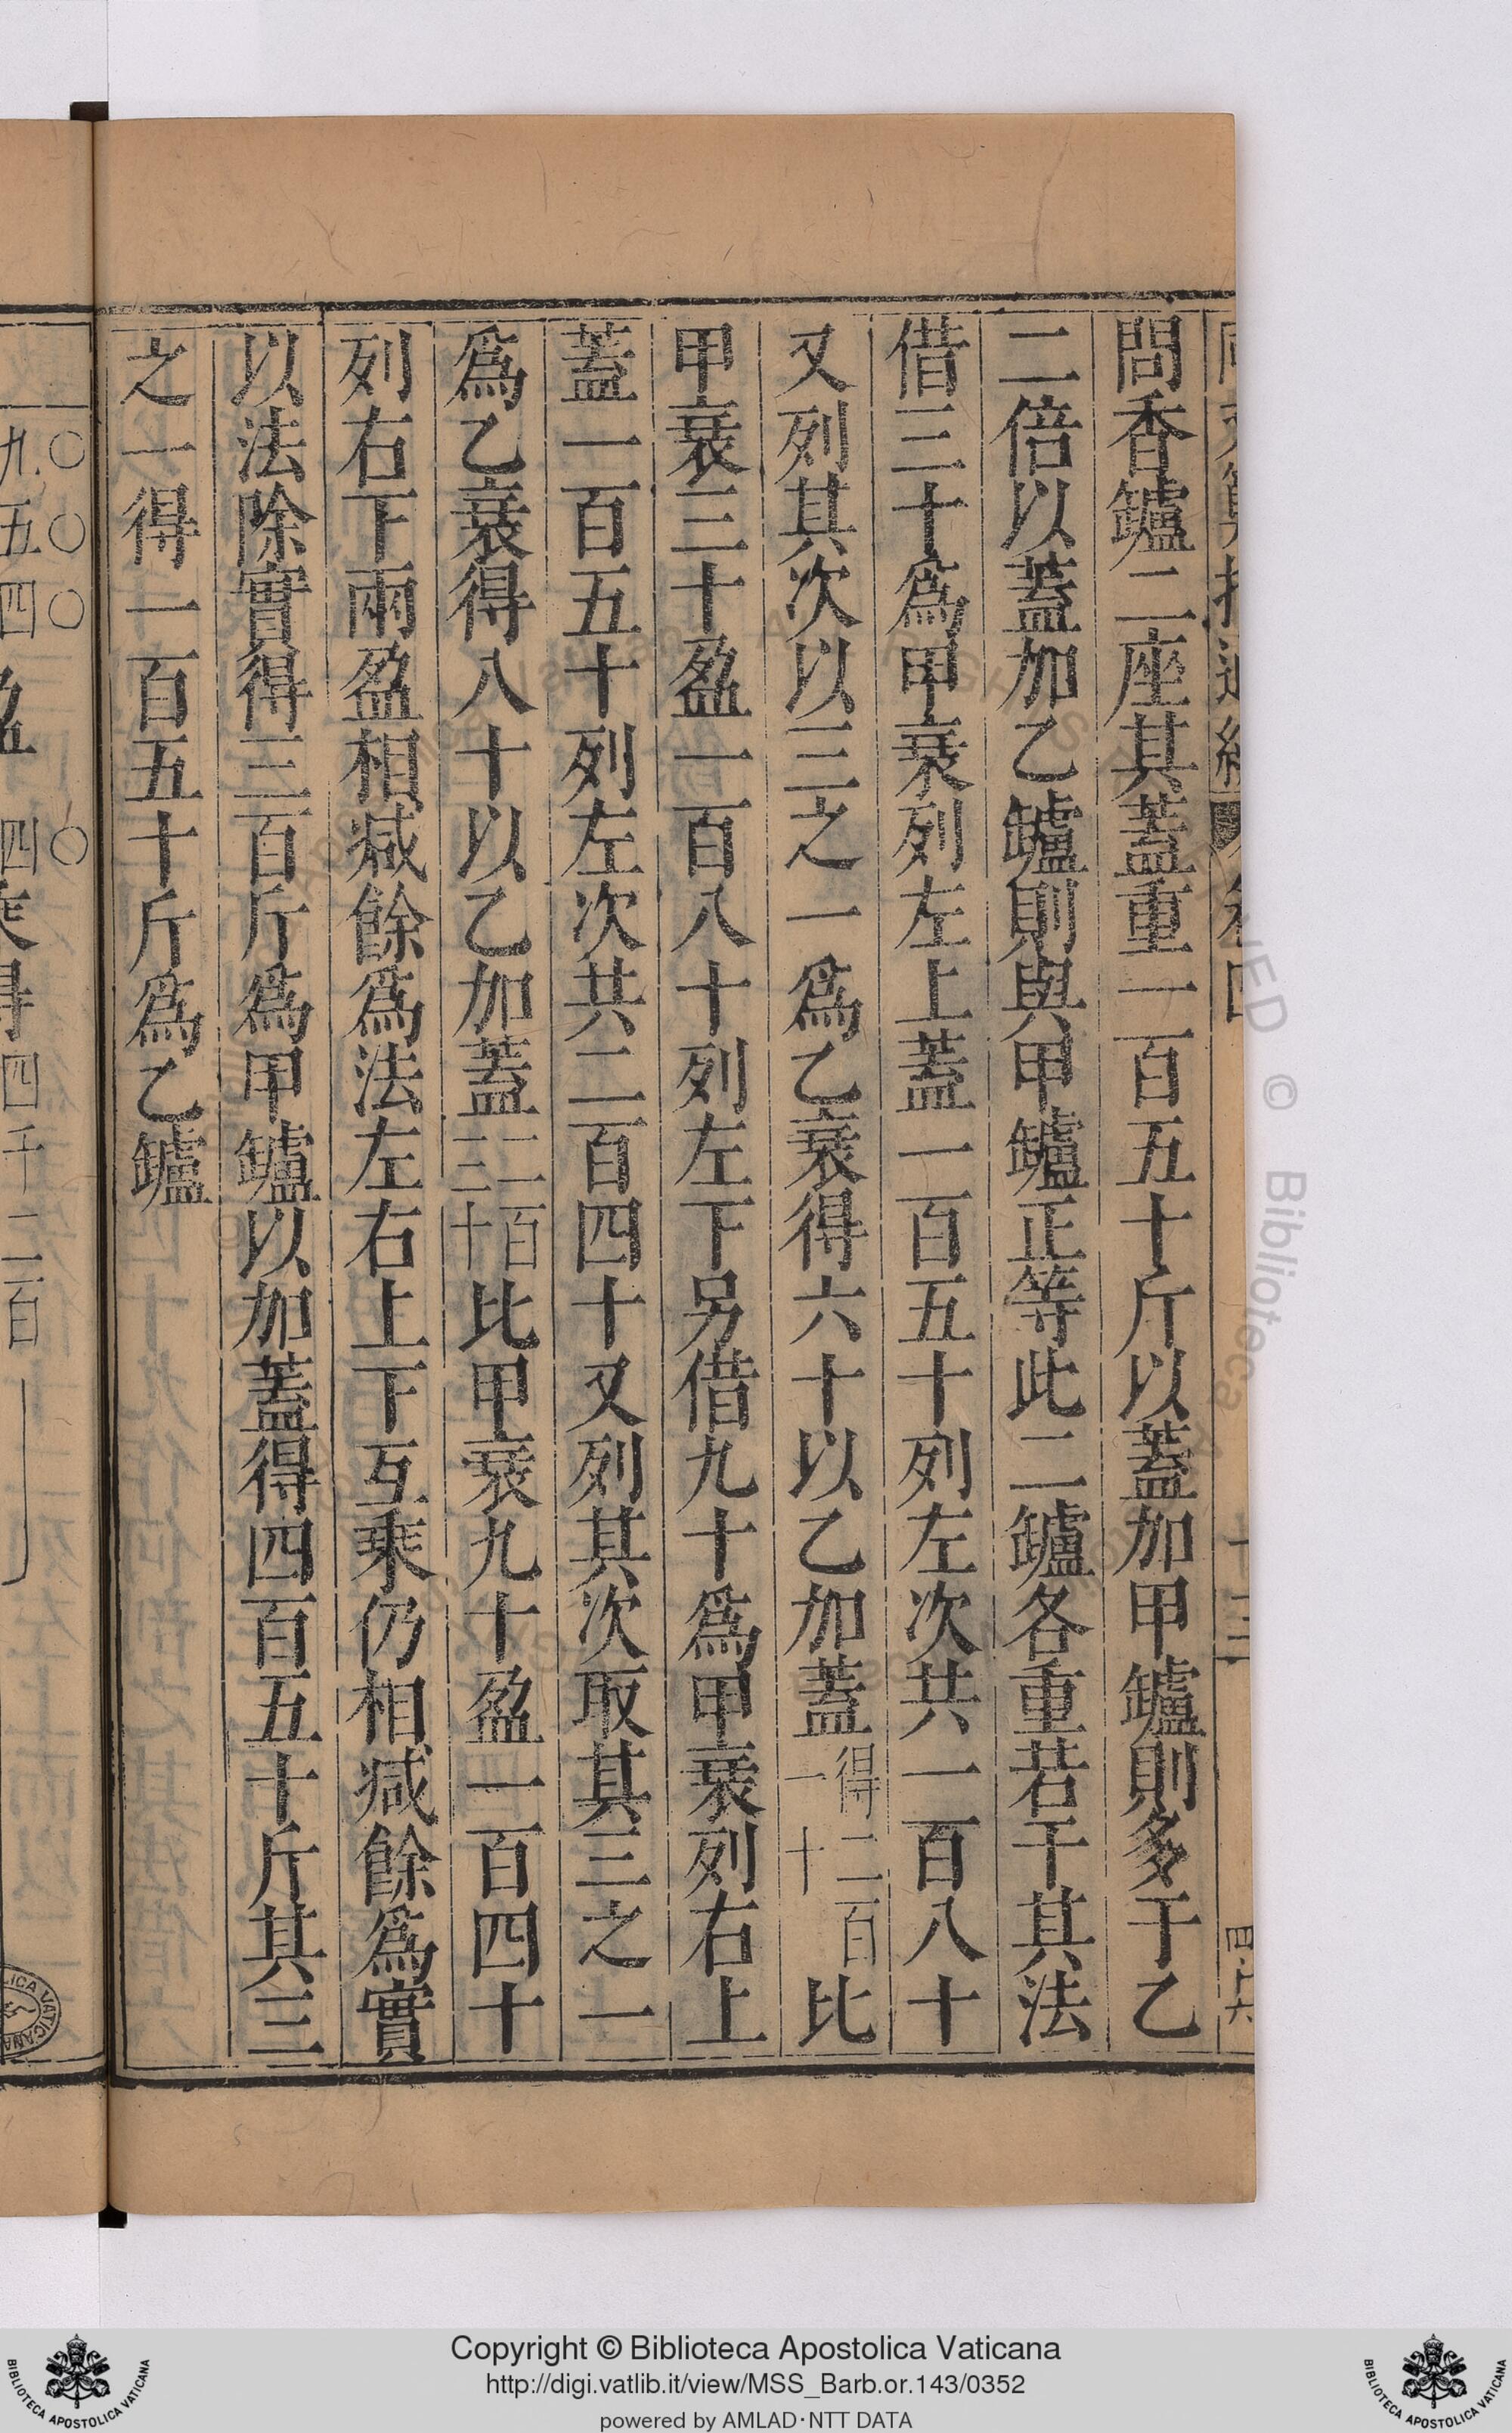 問香鑪二座其蓋重一百五十斤以蓋加甲鑪則多于乙
二倍以蓋加乙鑪則與甲鑪正等此二鑪各重若干其法
借三十爲甲衰列左上蓋一百五十列左次共一百八十
又列其次以三之一爲乙衰得六十以乙加蓋得二百一十比
甲衰三十盈一百八十列左下另借九十爲甲衰列右上
蓋一百五十列左次共二百四十又列其次取其三之一
爲乙衰得八十以乙加蓋二百三十比甲衰九十盈一百四十
列右下兩盈相减餘爲法左右上下互乘仍相减餘爲實
以法除實得三百斤爲甲鑪以加蓋得四百五十斤其三
之一得一百五十斤爲乙鑪
四千二百
Copyright © Biblioteca Apostolica Vaticana
http://digi.vatlib.it/view/MSS_Barb.or.143/0352
powered by AMLAD·NTT DATA
BIBLIOTECA APOSTOLICA VATICANA
BIBLIOTECA APOSTOLICA VATICANA